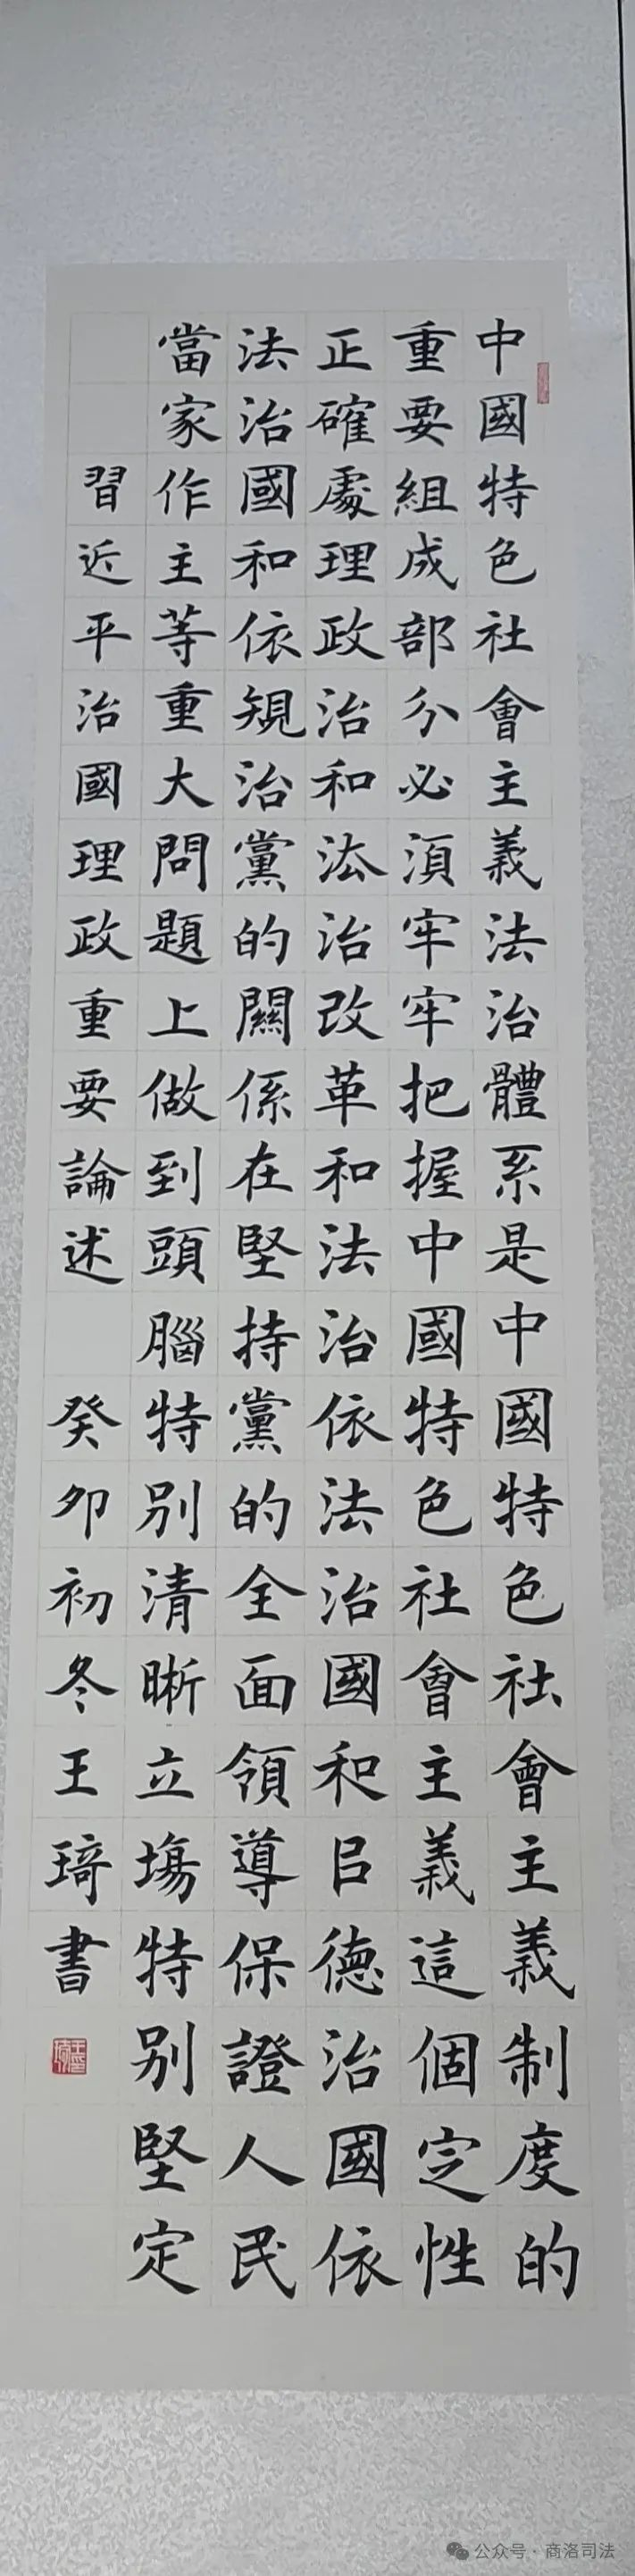 中國特色社會主義法治體系是中國特色社會主義制度的
重要組成部分必須牢牢把握中國特色社會主義這個定性
正確處理政治和法治改革和法治依法治國和㠯德治國依
法治國和依規治黨的關係在堅持黨的全面領導保證人民
當家作主等重大問題上做到頭腦特別清晰立場特別堅定
習近平治國理政重要論述 癸卯初冬王琦書
公众号·商洛司法